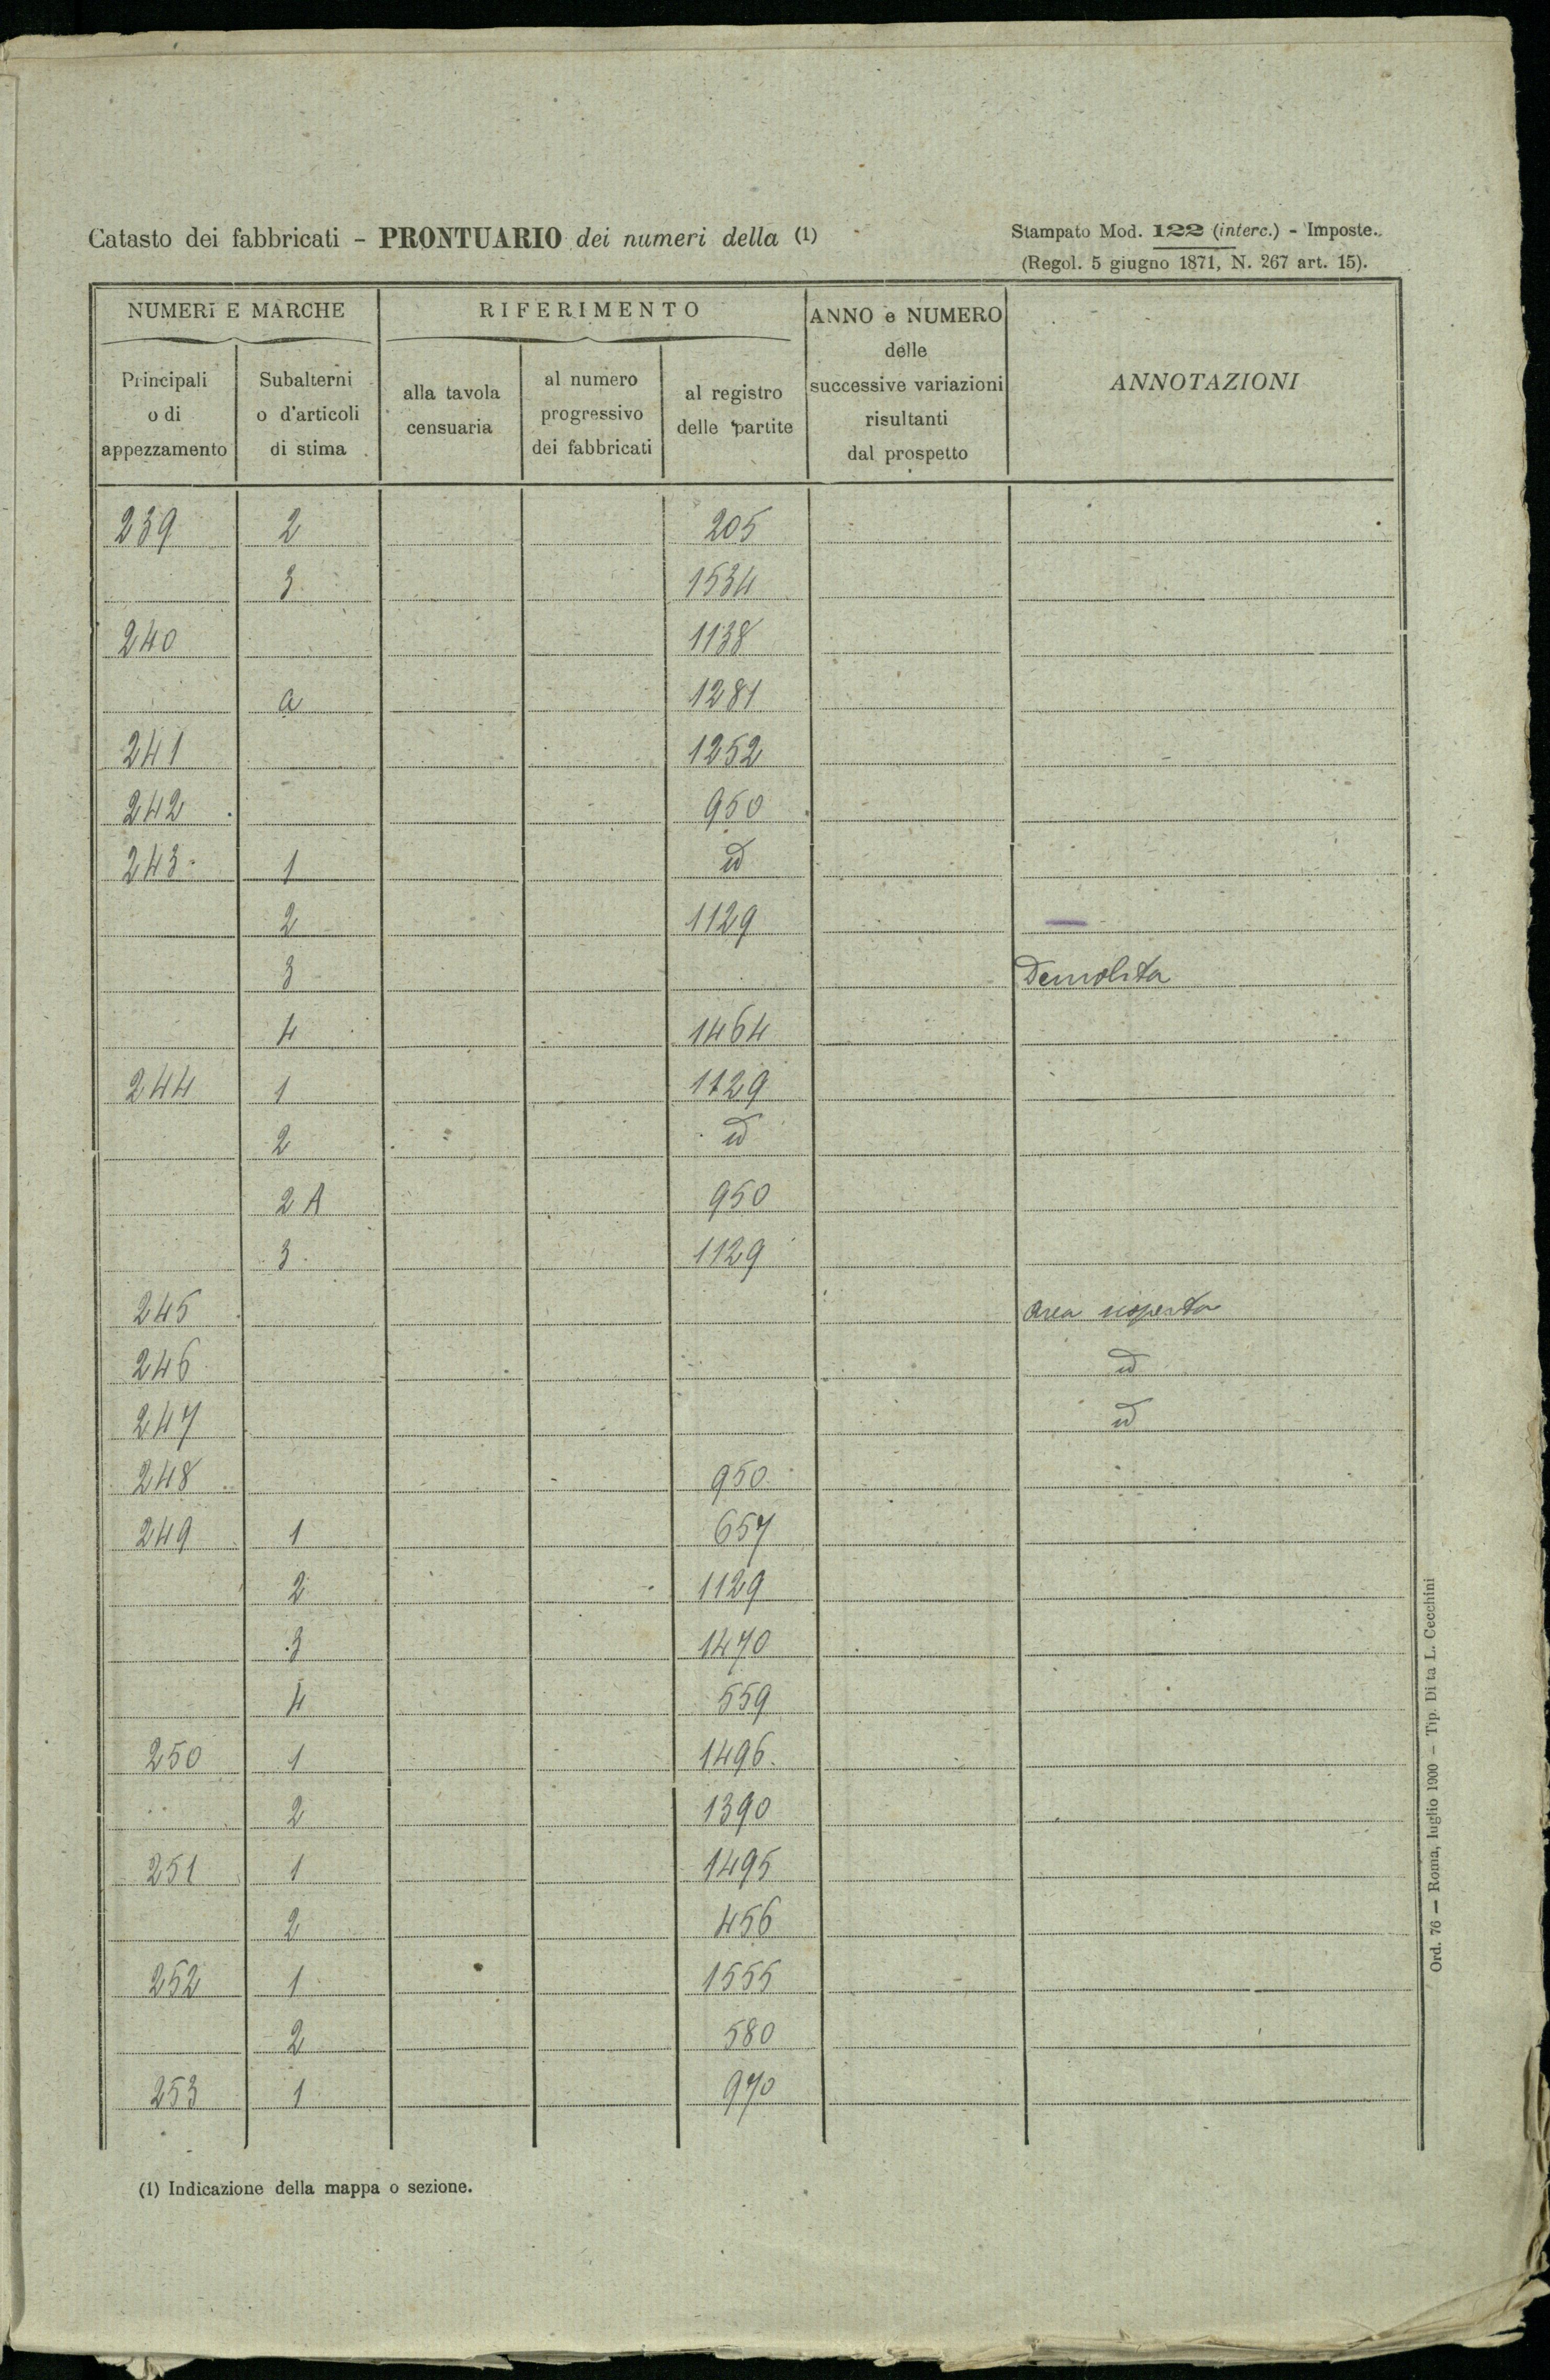 Catasto dei fabbricati - PRONTUARIO dei numeri della (1)
Stampato Mod. 122 (interc.) - Imposte.
(Regol. 5 giugno 1871, N. 267 art. 15).
NUMERI E MARCHE
RIFERIMENTO
ANNO e NUMERO
delle
successive variazioni
risultanti
dal prospetto
ANNOTAZIONI
Principali
o di
appezzamento
Subalterni
o d'articoli
di stima
alla tavola
censuaria
al numero
progressivo
dei fabbricati
al registro
delle partite
239 2 205
3 1534
240 1138
a 1281
241 1252
242 950
243 1 id
2 1129
3 Demolita
4 1464
244 1 1129
2 id
2 A 950
3 1129
245 Area scoperta
246 id
247 id
248 950
249 1 657
2 1129
3 1470
4 559
250 1 1496
2 1390
251 1 1495
2 456
252 1 1555
2 580
253 1 970
(1) Indicazione della mappa o sezione.
Ord. 76 — Roma, luglio 1900 — Tip. Di ta L. Cecchini